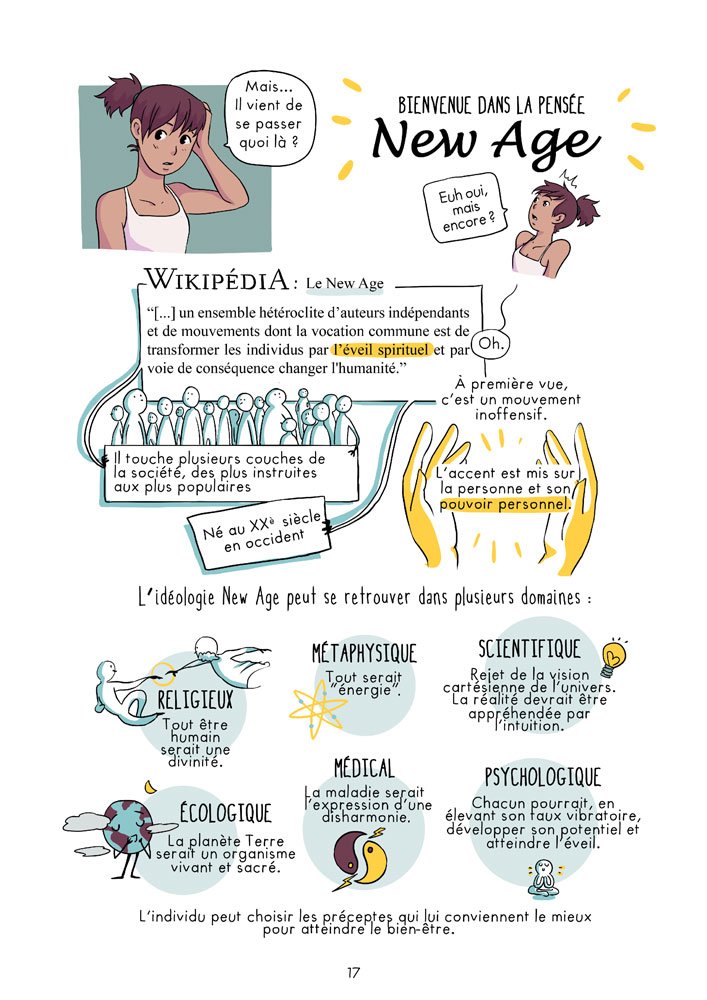 Mais...
Il vient de
se passer
quoi là ?
BIENVENUE DANS LA PENSÉE
New Age
Euh oui,
mais
encore ?
WIKIPÉDIA : Le New Age
“[...] un ensemble hétéroclite d’auteurs indépendants
et de mouvements dont la vocation commune est de
transformer les individus par l’éveil spirituel et par
voie de conséquence changer l'humanité.”
Oh.
À première vue,
c’est un mouvement
inoffensif.
Il touche plusieurs couches de
la société, des plus instruites
aux plus populaires
Né au XXè siècle
en occident
L’accent est mis sur
la personne et son
pouvoir personnel.
L’idéologie New Age peut se retrouver dans plusieurs domaines :
RELIGIEUX
Tout être
humain
serait une
divinité.
MÉTAPHYSIQUE
Tout serait
“énergie”.
SCIENTIFIQUE
Rejet de la vision
cartésienne de l’univers.
La réalité devrait être
appréhendée par
l’intuition.
ÉCOLOGIQUE
La planète Terre
serait un organisme
vivant et sacré.
MÉDICAL
La maladie serait
l’expression d’une
disharmonie.
PSYCHOLOGIQUE
Chacun pourrait, en
élevant son taux vibratoire,
développer son potentiel et
atteindre l’éveil.
L’individu peut choisir les préceptes qui lui conviennent le mieux
pour atteindre le bien-être.
17